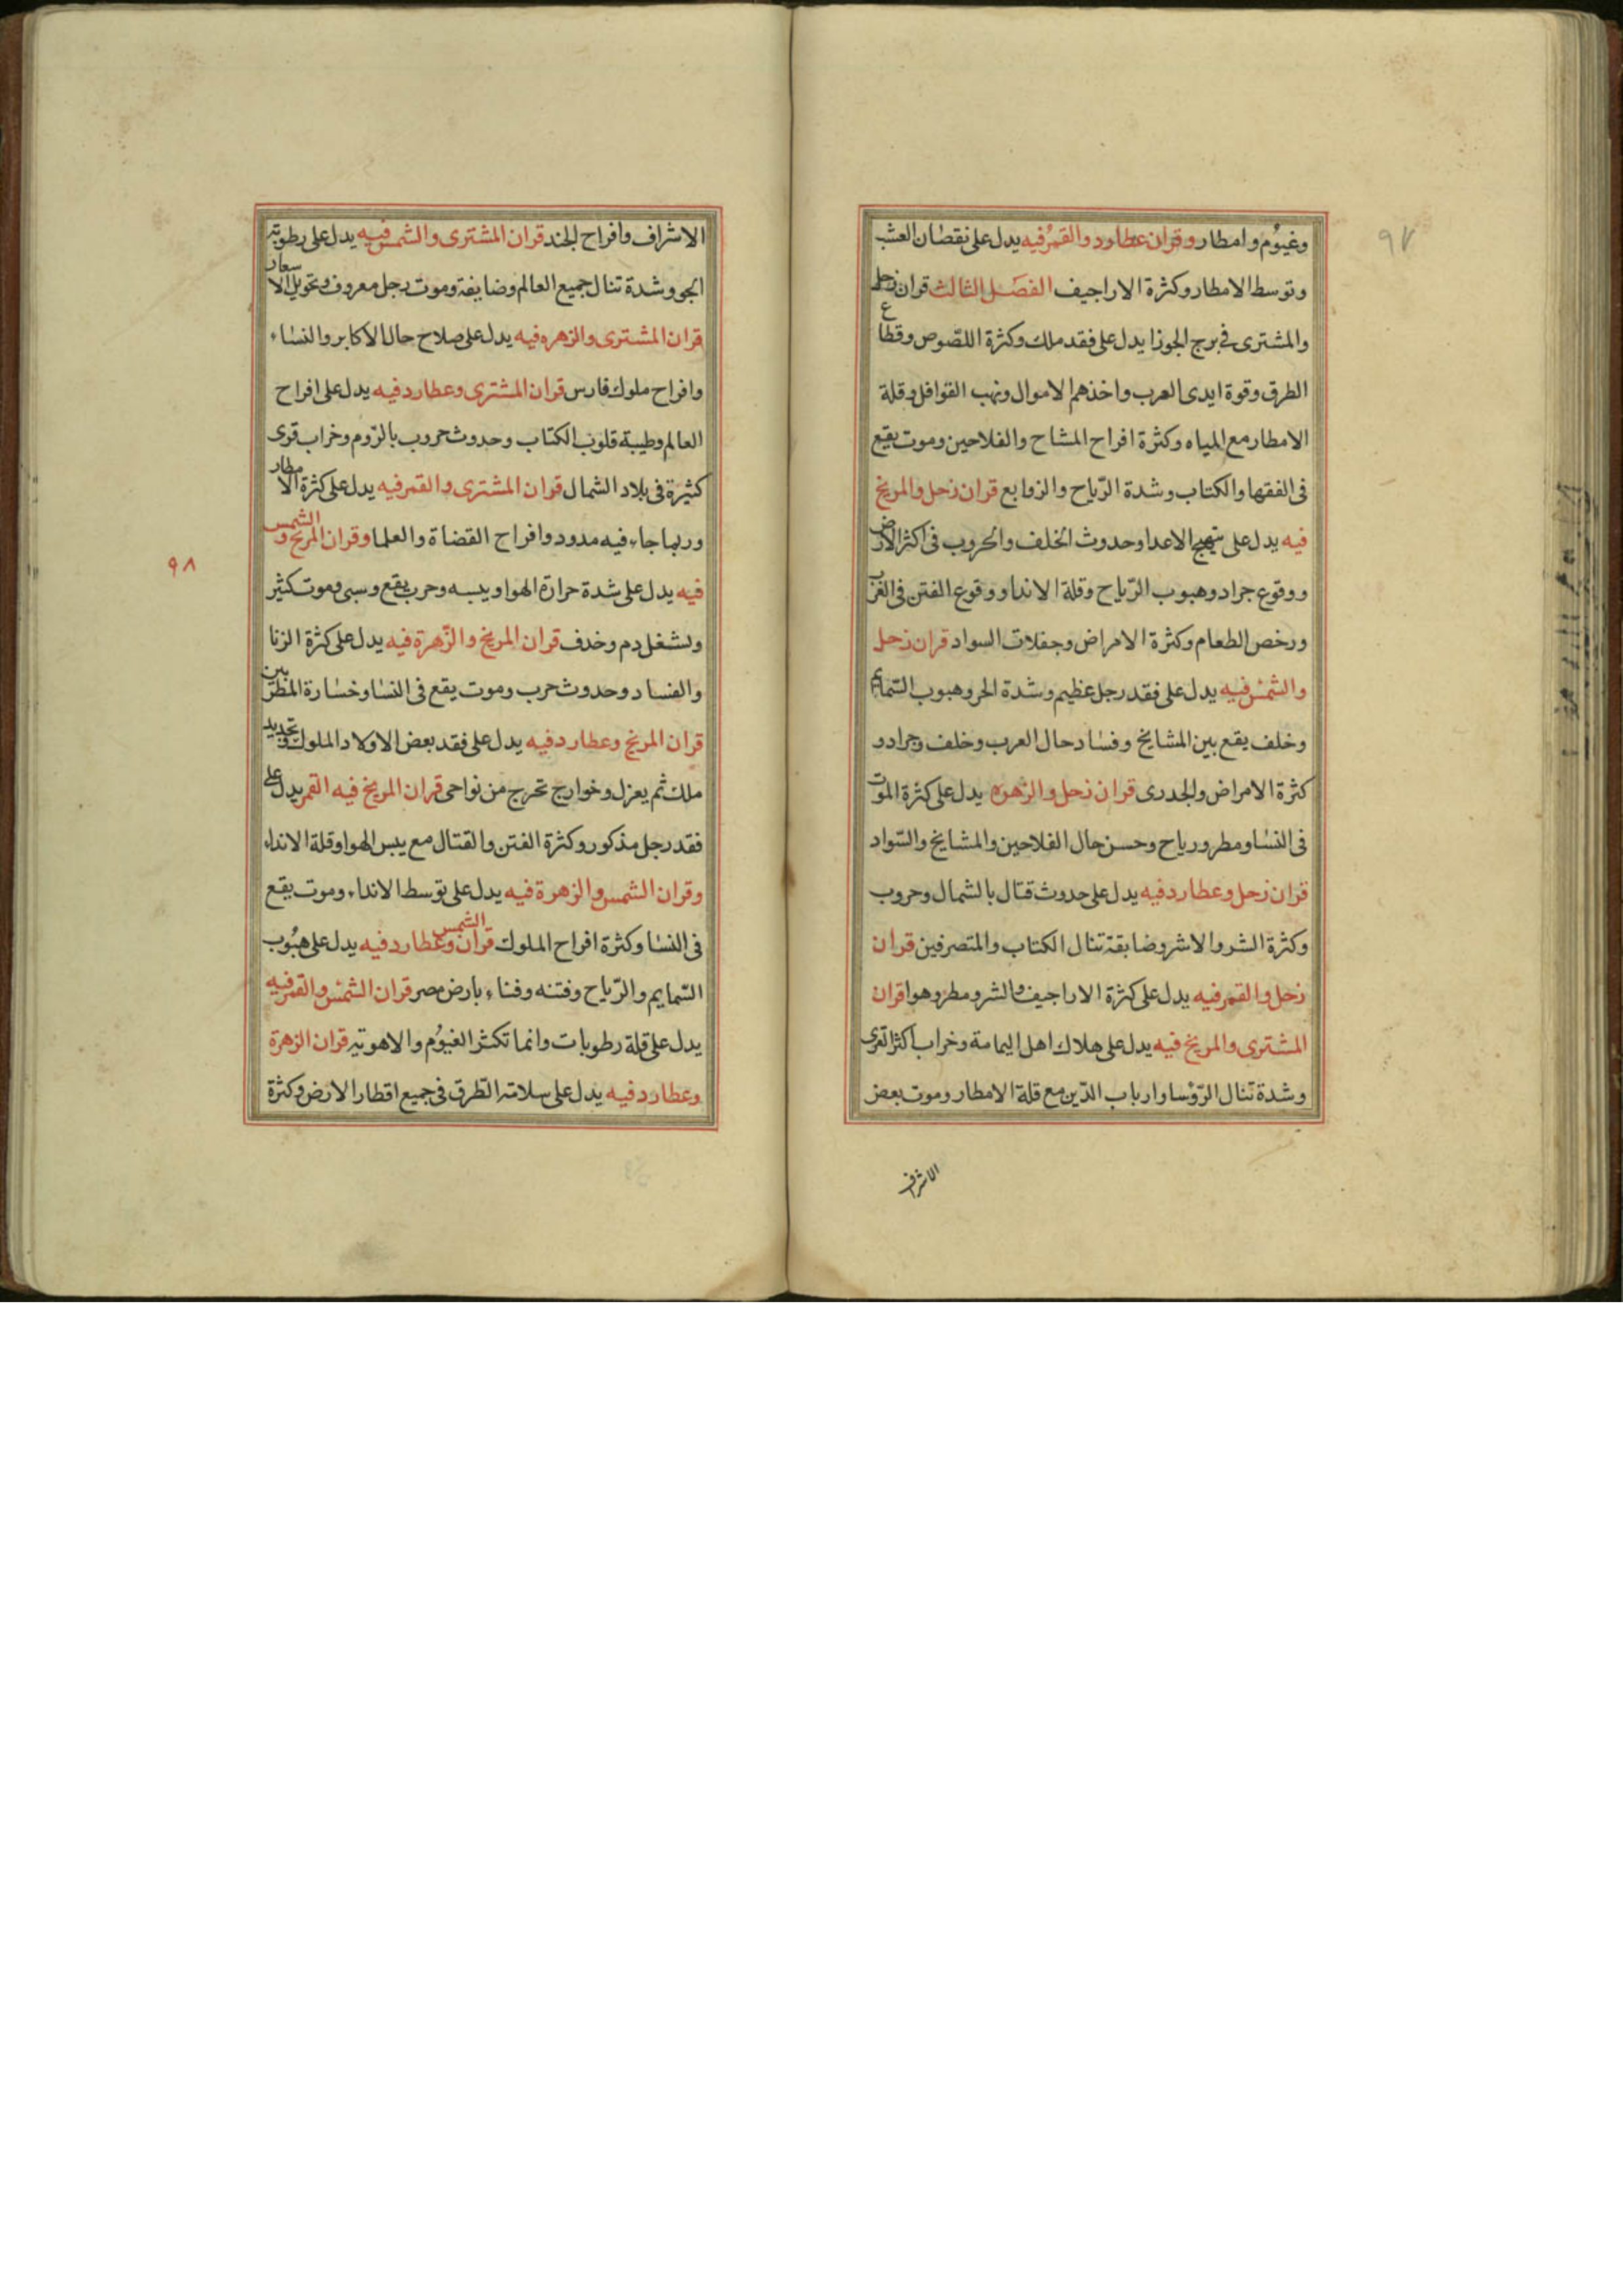 ٩٧
وغيوم وامطار وقران عطارد والقمر فيه يدل على نقصان العشب
وتوسط الامطار وكثرة الاراجيف الفصل الثالث قران زحل
والمشترى فى برج الجوزا يدل على فقد ملك وكثرة اللصوص وقطاع
الطرق وقوة ايدى العرب واخذهم الاموال ونهب القوافل وقلة
الامطار مع المياه وكثرة افراح المشاح والفلاحين وموت يقع
فى الفقها والكتاب وشدة الرّياح والزوابع قران زحل والمريخ
فيه يدل على تهيج الاعدا وحدوث الخلف والحروب فى اكثر الارض
ووقوع جراد وهبوب الرّياح وقلة الاندا ووقوع الفتن فى الغرب
ورخص الطعام وكثرة الامراض وجفلات السواد قران زحل
والشمس فيه يدل على فقد رجل عظيم وشدة الحر وهبوب السّمايم
وخلف يقع بين المشايخ وفساد حال العرب وخلف وجراد و
كثرة الامراض والجدرى قران زحل والزهره يدل على كثرة الموت
فى النسا ومطر ورياح وحسن حال الفلاحين والمشايخ والسّواد
قران زحل وعطارد فيه يدل على حدوث قتال بالشمال وحروب
وكثرة الشر والاشر وضايقة تنال الكتاب والمتصرفين قران
زحل والقمر فيه يدل على كثرة الاراجيف والشر ومطر وهوا قران
المشترى والمريخ فيه يدل على هلاك اهل اليمامة وخراب اكثر القرى
وشدة تنال الرّؤسا وارباب الدّين مع قلة الامطار وموت بعض
الاشراف
٩٨
الاشراف وافراح الجند قران المشترى والشمس فيه يدل على رطوبة
الجو وشدة تنال جميع العالم وضايقة وموت رجل معروف وتحويل الاسعار
قران المشترى والزهره فيه يدل على صلاح حال الاكابر والنساء
وافراح ملوك فارس قران المشترى وعطارد فيه يدل على افراح
العالم وطيبة قلوب الكتاب وحدوث حروب بالرّوم وخراب قرى
كثيرة فى بلاد الشمال قران المشترى والقمر فيه يدل على كثرة الامطار
وربما جاء فيه مدود وافراح القضاة والعلما وقران المريخ والشمس
فيه يدل على شدة حرارة الهوا ويبسه وحرب يقع وسبى وموت كثير
ولشغل دم وخدف قران المريخ والزّهرة فيه يدل على كثرة الزنا
والفساد وحدوث حرب وموت يقع فى النسا وخسارة المطربين
قران المريخ وعطارد فيه يدل على فقد بعض الاولاد الملوك وتجديد
ملك ثم يعزل وخوارج تخرج من نواحى قران المريخ فيه القمر يدل على
فقد رجل مذكور وكثرة الفتن والقتال مع يبس الهوا وقلة الانداء
وقران الشمس والزهرة فيه يدل على توسط الانداء وموت يقع
فى النسا وكثرة افراح الملوك قران الشمس وعطارد فيه يدل على هبوب
السّمايم والرّياح وفتنه وفناء بارض مصر قران الشمس والقمر فيه
يدل على قلة رطوبات وانما تكثر الغيوم والاهوية قران الزهرة
وعطارد فيه يدل على سلامة الطّرق فى جميع اقطار الارض وكثرة